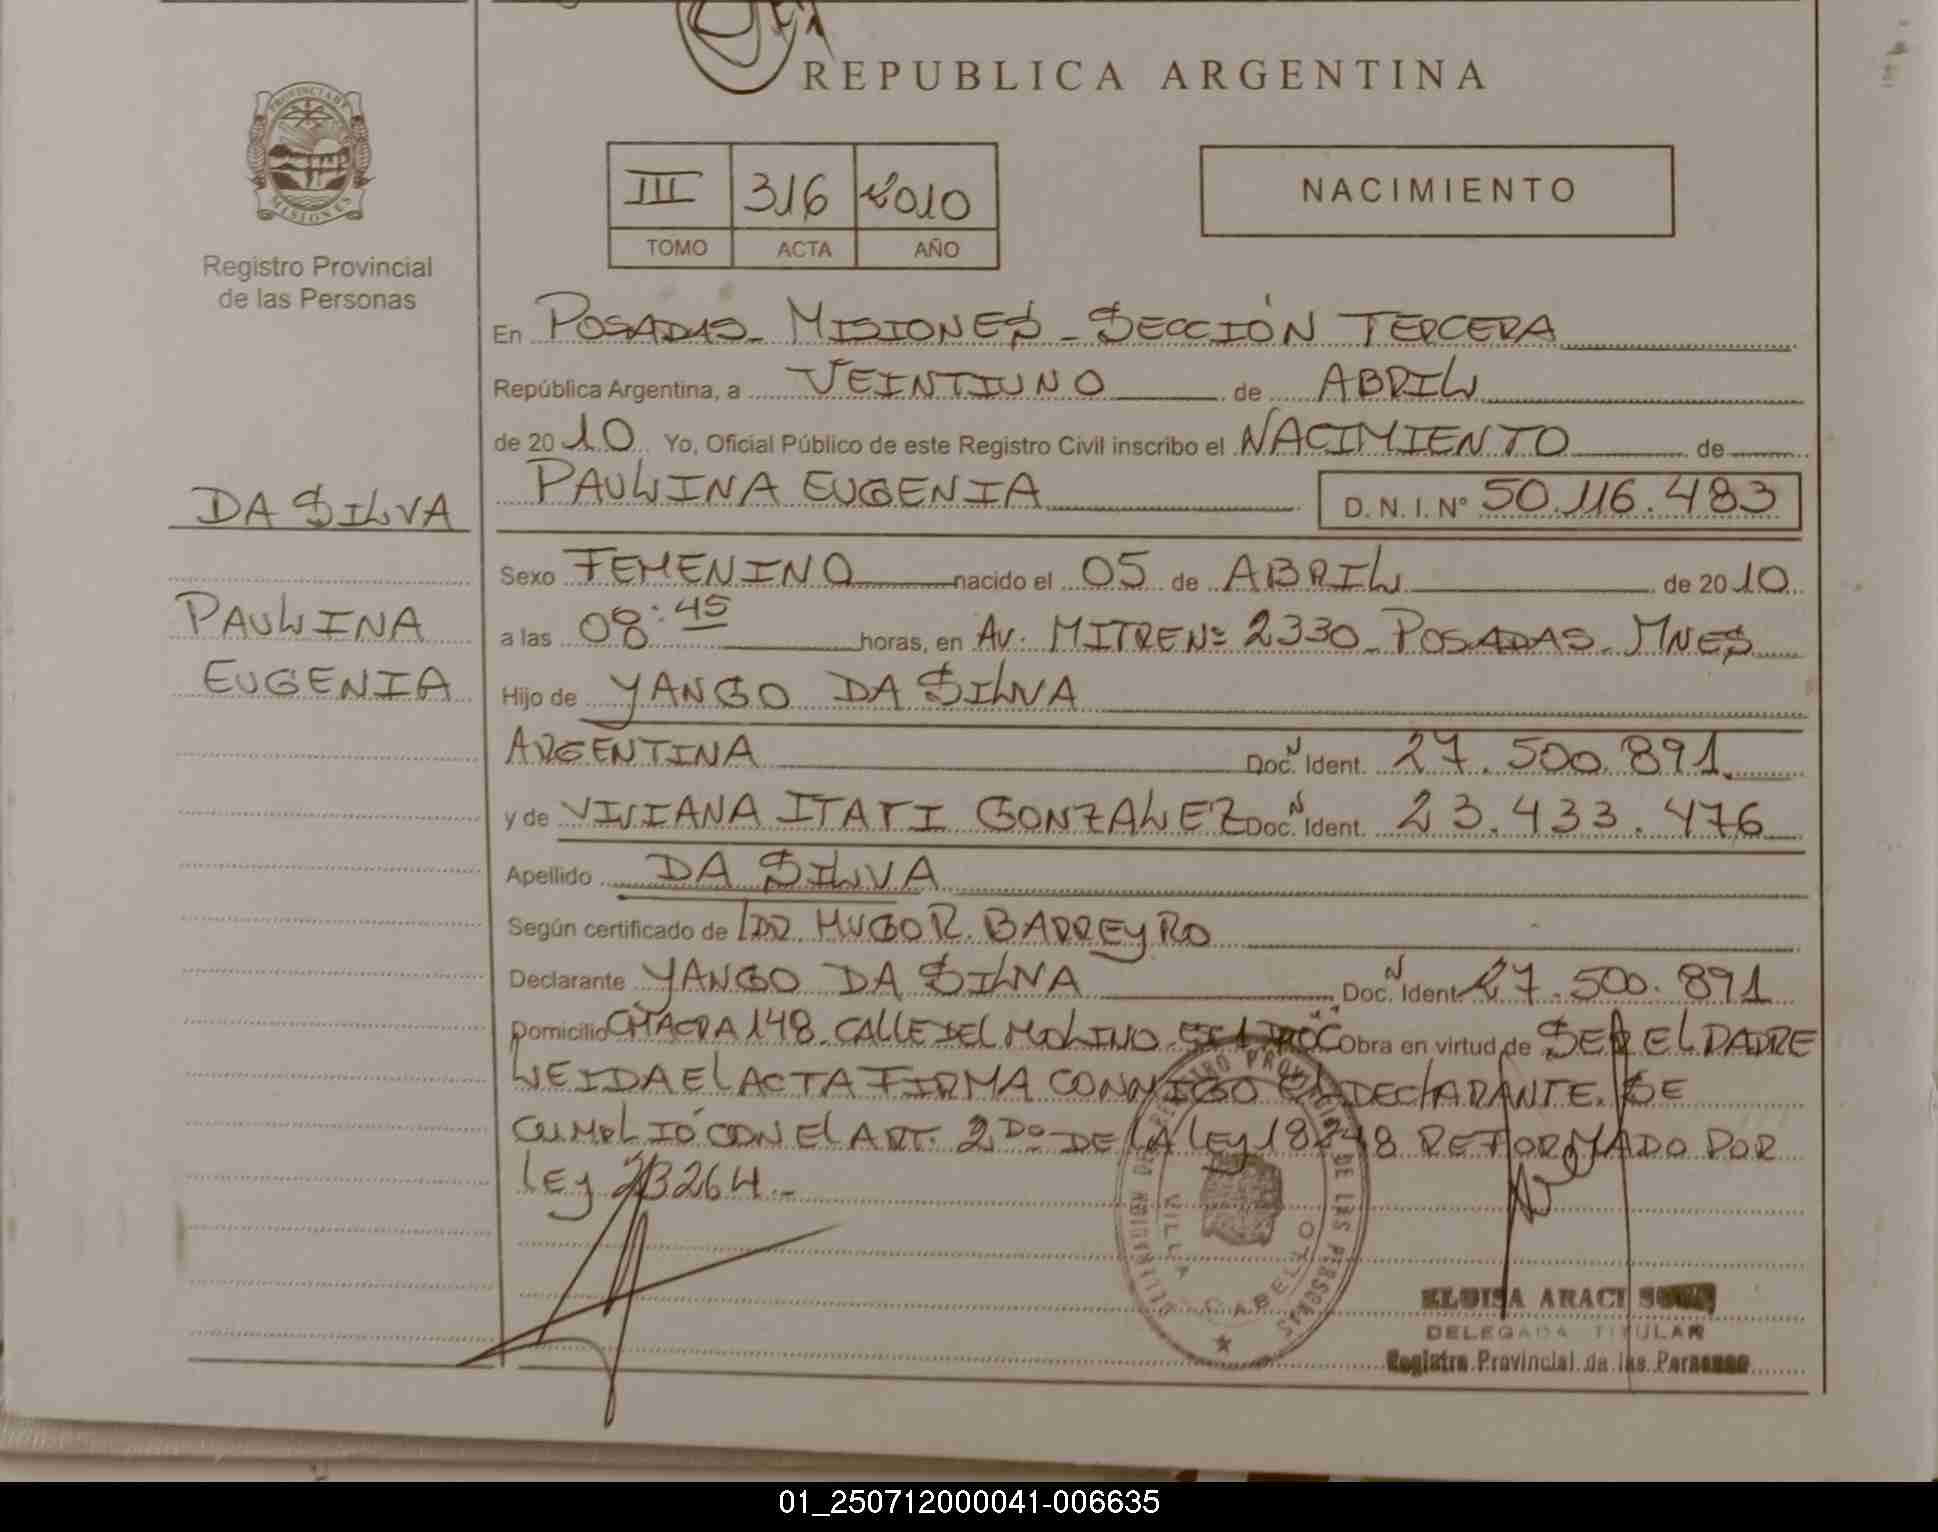 REPUBLICA ARGENTINA
PROVINCIA DE
MISIONES
Registro Provincial
de las Personas
III 316 2010
TOMO ACTA AÑO
NACIMIENTO
En POSADAS - MISIONES - SECCIÓN TERCERA
República Argentina, a VEINTIUNO de ABRIL
de 2010 Yo, Oficial Público de este Registro Civil inscribo el NACIMIENTO de
PAULINA EUGENIA D. N. I. Nº 50.116.483
DA SILVA
PAULINA
EUGENIA
Sexo FEMENINO nacido el 05 de ABRIL de 2010
a las 08:45 horas, en AV. MITRE Nº 2330 - POSADAS - MNES
Hijo de YANGO DA SILVA
ARGENTINA Doc. N Ident. 27.500.891
y de VIVIANA ITATI GONZALEZ Doc. N Ident. 23.433.476
Apellido DA SILVA
Según certificado de DR. HUGO R. BARREYRO
Declarante YANGO DA SILVA Doc. N Ident 27.500.891
Domicilio CHACRA 148 CALLE DEL MOLINO Obra en virtud de SER EL PADRE
LEIDA El ACTA FIRMA CONMIGO El DEClARANTE. SE
CUMPLIÓ CON El ART. 2DO DE LA lEy 18248 REFORMADO POR
lEy 23264.-
DELEGACION DEL REGISTRO PROVINCIAL DE LAS PERSONAS
VILLA CABELLO
ELOISA ARACI
DELEGADA TITULAR
Registro Provincial de las Personas
01_250712000041-006635